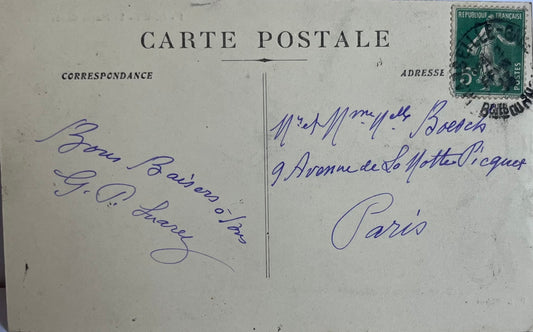 CARTE POSTALE
CORRESPONDANCE
ADRESSE
RÉPUBLIQUE FRANÇAISE
5c
POSTES
Bons Baisers à tous
G. P. Suarez
Mr et Mme Melle Boesch
9 Avenue de La Motte Picquet
Paris